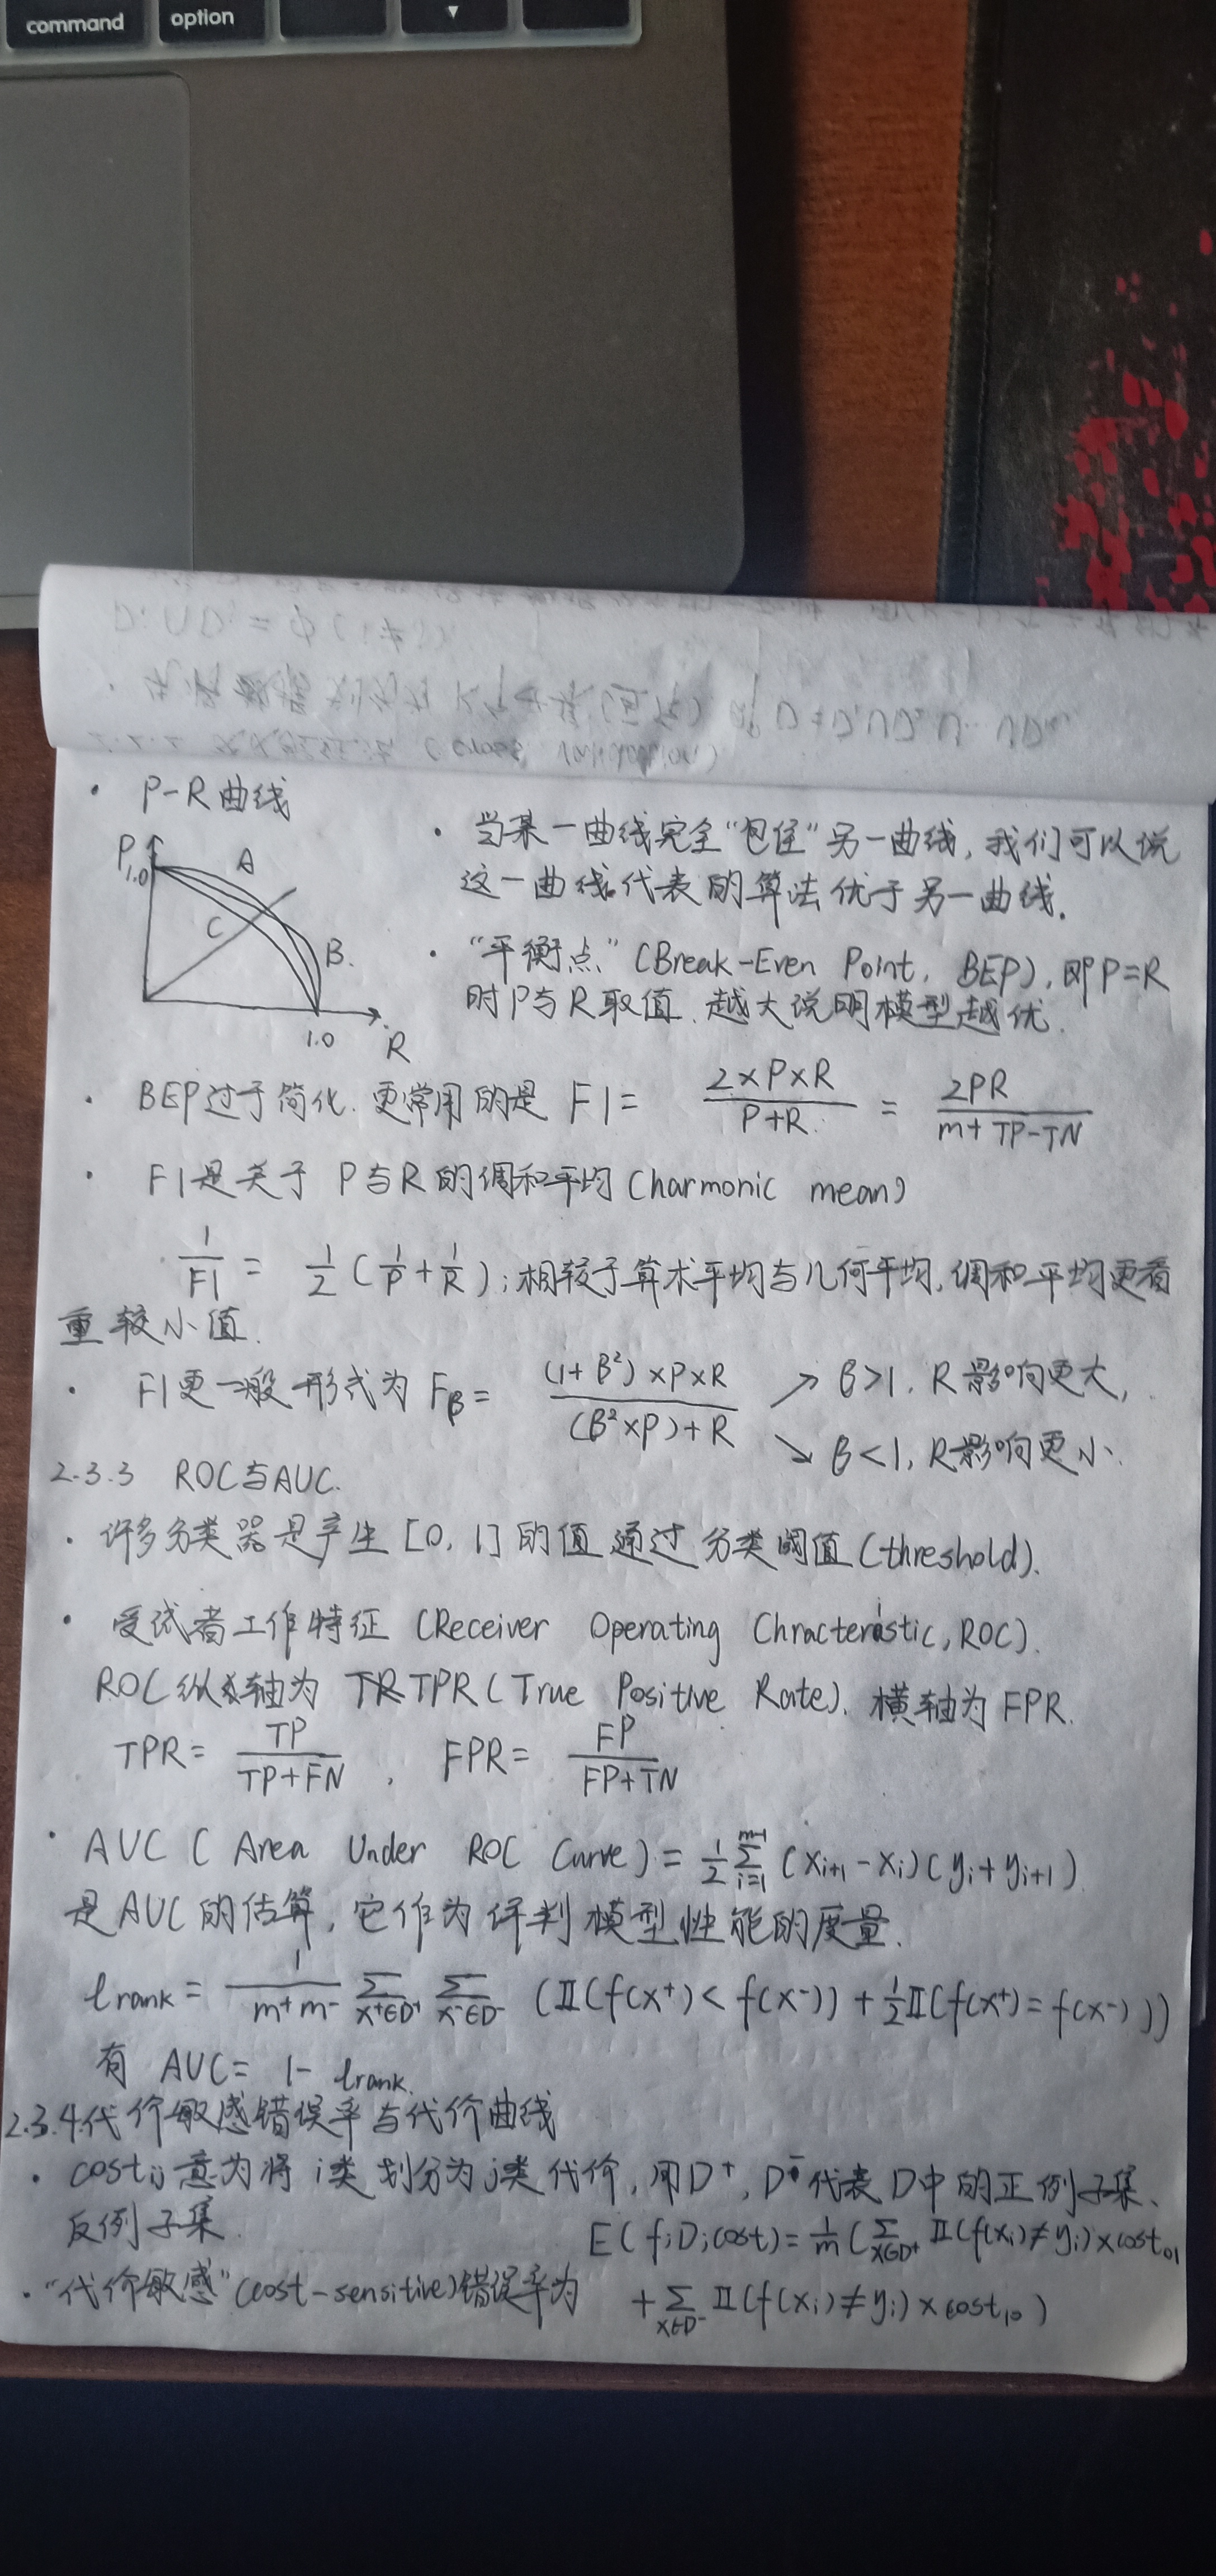 command option
D_i ∩ D_j = Φ (i≠j)
2.2.2 交叉验证法 (cross validation)
· P-R曲线
P
1.0
A
C
B
1.0
R
· 当某一曲线完全“包住”另一曲线, 我们可以说
这一曲线代表的算法优于另一曲线.
· “平衡点” (Break-Even Point, BEP), 即P=R
时P与R取值. 越大说明模型越优.
· BEP过于简化. 更常用的是 F1 = 2×P×R / (P+R) = 2PR / (m+TP-TN)
· F1是关于 P与R的调和平均 (harmonic mean)
1/F1 = 1/2 (1/P + 1/R); 相较于算术平均与几何平均, 调和平均更看
重较小值.
· F1更一般形式为 Fβ = (1+β²)×P×R / ((β²×P)+R) ↗ β>1, R影响更大,
↘ β<1, R影响更小.
2.3.3 ROC与AUC.
· 许多分类器是产生[0, 1]的值 通过 分类阈值(threshold).
· 受试者工作特征 (Receiver Operating Chracteristic, ROC).
ROC纵轴为 TPR (True Positive Rate), 横轴为 FPR.
TPR = TP / (TP+FN) , FPR = FP / (FP+TN)
· AUC ( Area Under ROC Curve) = 1/2 Σ_{i=1}^{m-1} (x_{i+1} - x_i)(y_i + y_{i+1})
是AUC的估算, 它作为评判模型性能的度量.
ℓrank = 1/(m⁺m⁻) Σ_{x⁺∈D⁺} Σ_{x⁻∈D⁻} (𝕀(f(x⁺) < f(x⁻)) + 1/2 𝕀(f(x⁺) = f(x⁻)))
有 AUC = 1 - ℓrank.
2.3.4 代价敏感错误率与代价曲线
· cost_ij 意为将 i类 划分为 j类 代价, 用D⁺, D⁻代表 D中的正例子集、
反例子集.
E(f;D;cost) = 1/m (Σ_{x∈D⁺} 𝕀(f(x_i)≠y_i)×cost_01
· “代价敏感” (cost-sensitive) 错误率为 + Σ_{x∈D⁻} 𝕀(f(x_i)≠y_i)×cost_10)